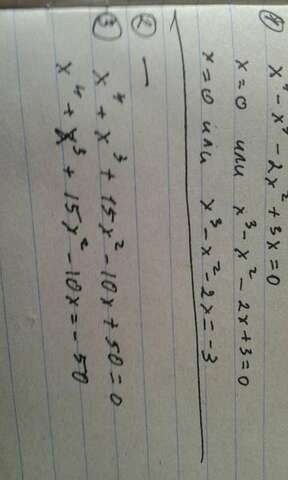 ① x⁴ - x³ - 2x² + 3x = 0
x = 0 или x³ - x² - 2x + 3 = 0
x = 0 или x³ - x² - 2x = -3
② —
③ x⁴ + x³ + 15x² - 10x + 50 = 0
x⁴ + x³ + 15x² - 10x = -50